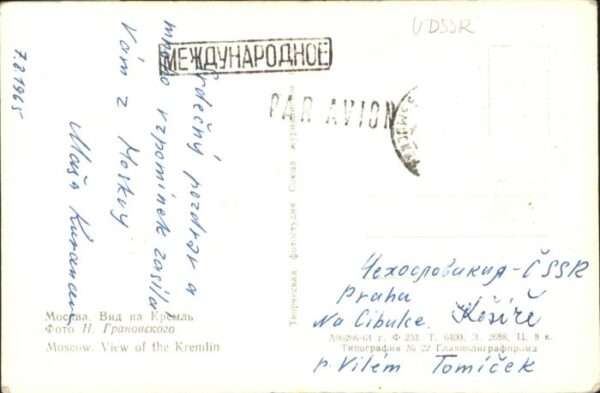 UDSSR
МЕЖДУНАРОДНОЕ
PAR AVION
7.2 1965
Srdečný pozdrav a
mnoho vzpomínek zasílá
Vám z Moskvy
Máša
Творческая фотостудия Союза журна
Чехословакия-ČSSR
Praha
Na Cibulce. Košíře
p. Vilém Tomíček
Москва. Вид на Кремль
Фото Н. Грановского
Moscow. View of the Kremlin
Т. 6400, З. 2688, Ц. 8 к.
Типография № 22 Главполиграфпрома